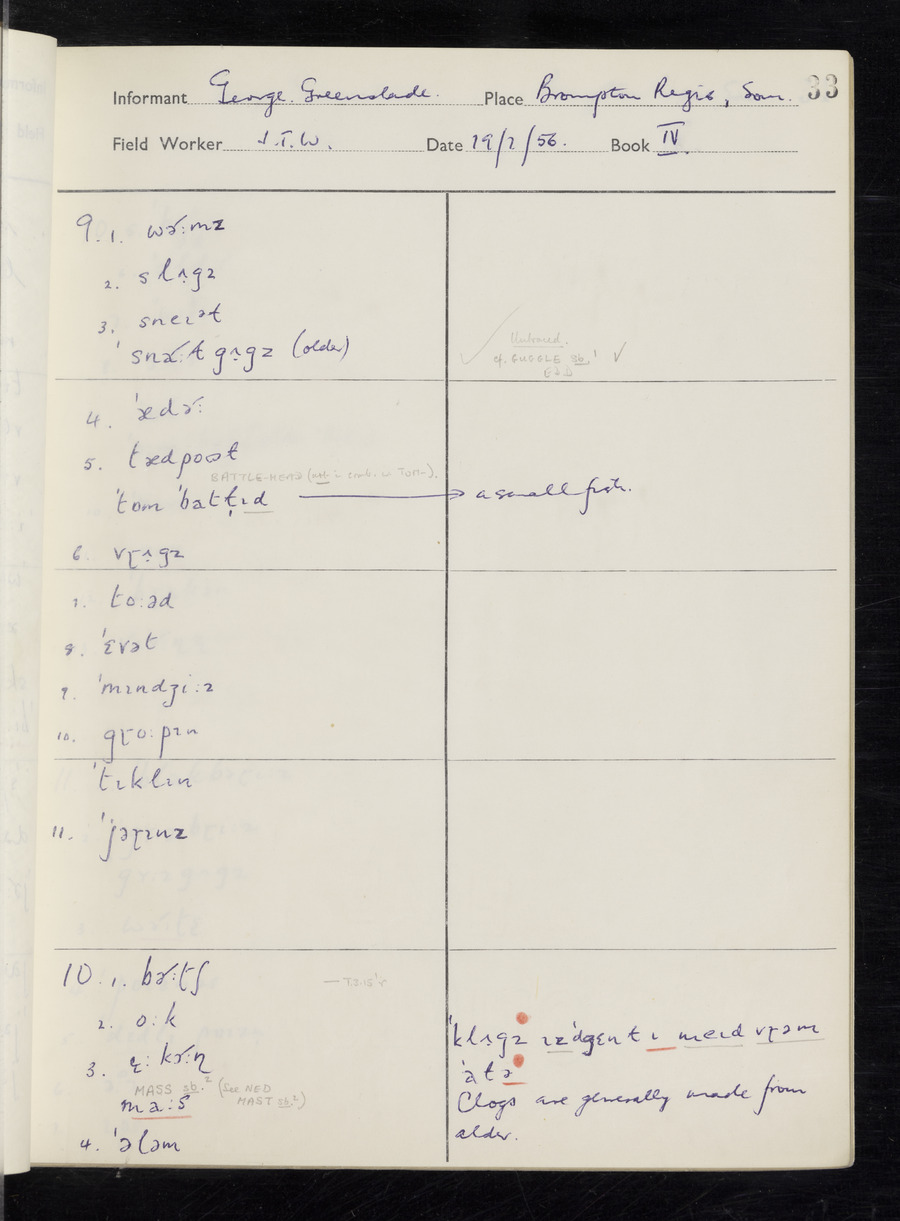 33
Informant George Greenslade. Place Brompton Regis, Som.
Field Worker J.T.W. Date 19/7/56. Book IV
9. 1. wə˞:mz
2. slʌ̣gz
3. sneɪət
ˈsnɑ˞:t gʌ̣gz (older)
Untraced.
cf. GUGGLE sb.¹
EDD
4. ˈædə˞:
5. tædpoʊst
BATTLE-HEAD ( in comb. w. TOM-).
ˈtɒm ˈbatt̩ɪd → a small fish.
6. vɽʌ̣gz
7. to:əd
8. ˈɛvət
9. ˈmɪndʒi:z
10. gɽo:pɪn
ˈtɪklɪn
11. ˈjəɽɪnz
10. 1. bə˞:tʃ
2. o:k
3. ɛ:kɔ˞:n
MASS sb.² (See NED
MAST sb.²)
ma:s
4. ˈələm
ˈklʌgz ɪzˈdʒɛntɪ meɪd vɽəm
ˈɑtə
Clogs are generally made from
alder.